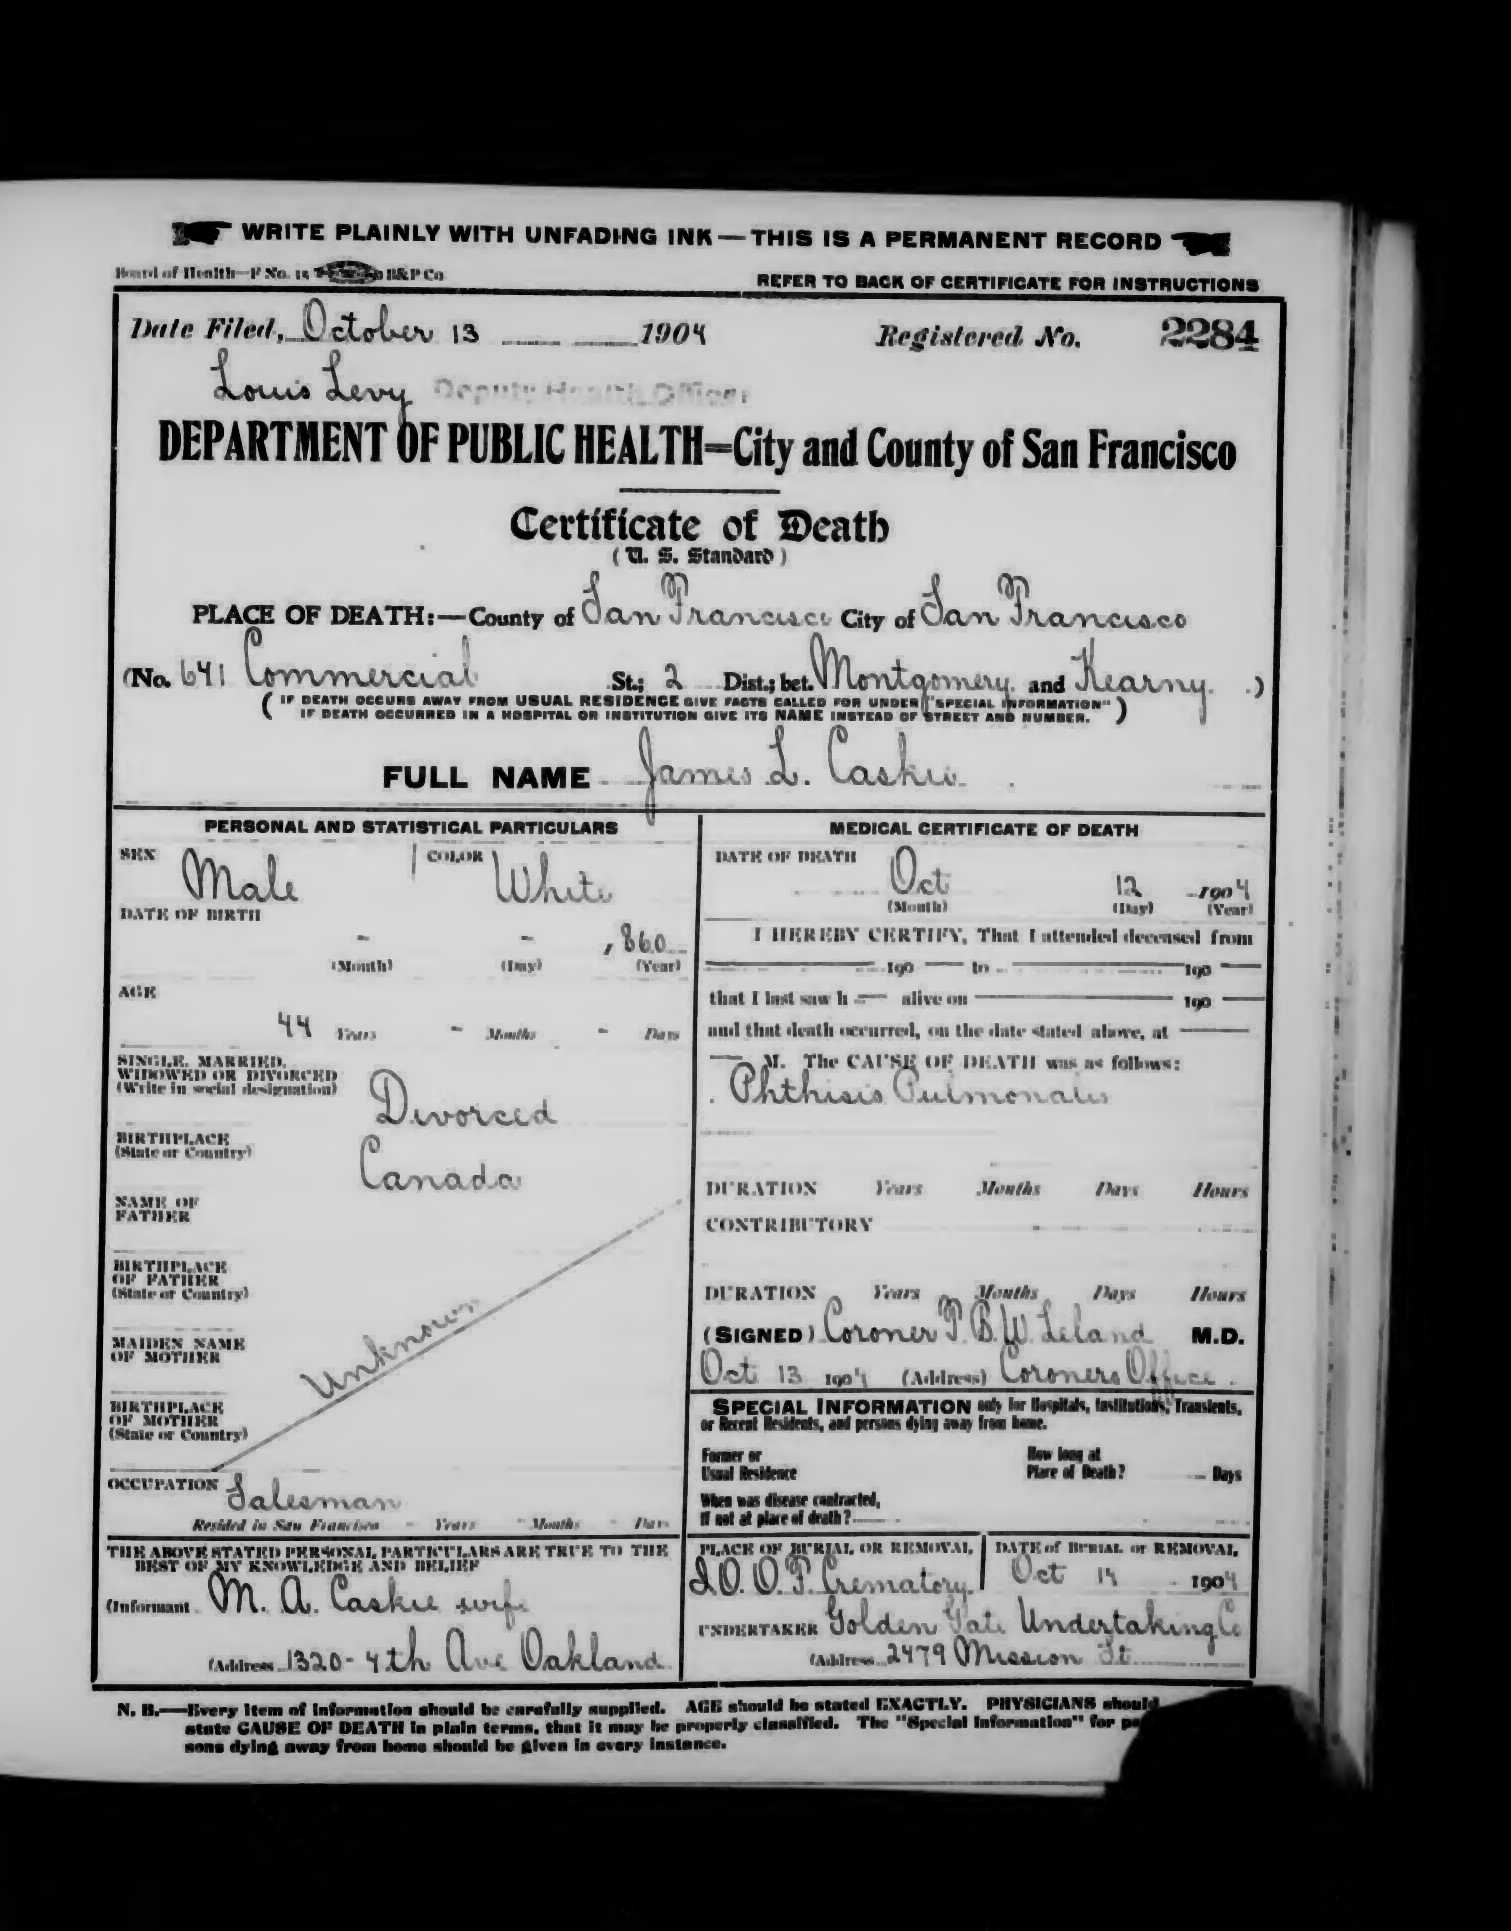 WRITE PLAINLY WITH UNFADING INK — THIS IS A PERMANENT RECORD
Board of Health—F No. 15 B&P Co
REFER TO BACK OF CERTIFICATE FOR INSTRUCTIONS
Date Filed, October 13 1904 Registered No. 2284
Louis Levy Deputy Health Officer
DEPARTMENT OF PUBLIC HEALTH=City and County of San Francisco
Certificate of Death
( U. S. Standard )
PLACE OF DEATH:—County of San Francisco City of San Francisco
(No. 641 Commercial St.; 2 Dist.; bet. Montgomery and Kearny )
( IF DEATH OCCURS AWAY FROM USUAL RESIDENCE GIVE FACTS CALLED FOR UNDER "SPECIAL INFORMATION"
IF DEATH OCCURRED IN A HOSPITAL OR INSTITUTION GIVE ITS NAME INSTEAD OF STREET AND NUMBER. )
FULL NAME James L. Caskie
PERSONAL AND STATISTICAL PARTICULARS
SEX Male COLOR White
DATE OF BIRTH
- - , 860
(Month) (Day) (Year)
AGE
44 Years - Months - Days
SINGLE, MARRIED,
WIDOWED OR DIVORCED
(Write in social designation)
Divorced
BIRTHPLACE
(State or Country)
Canada
NAME OF
FATHER
BIRTHPLACE
OF FATHER
(State or Country)
Unknown
MAIDEN NAME
OF MOTHER
BIRTHPLACE
OF MOTHER
(State or Country)
OCCUPATION Salesman
Resided in San Francisco - Years - Months - Days
THE ABOVE STATED PERSONAL PARTICULARS ARE TRUE TO THE
BEST OF MY KNOWLEDGE AND BELIEF
(Informant M. A. Caskie wife
(Address 1320 - 4th Ave Oakland
MEDICAL CERTIFICATE OF DEATH
DATE OF DEATH
Oct 12 1904
(Month) (Day) (Year)
I HEREBY CERTIFY, That I attended deceased from
190 — to 190 —
that I last saw h — alive on — 190 —
and that death occurred, on the date stated above, at —
— M. The CAUSE OF DEATH was as follows:
Phthisis Pulmonalis
DURATION Years Months Days Hours
CONTRIBUTORY
DURATION Years Months Days Hours
(SIGNED) Coroner T. B. W. Leland M.D.
Oct 13 1904 (Address) Coroners Office
SPECIAL INFORMATION only for Hospitals, Institutions, Transients,
or Recent Residents, and persons dying away from home.
Former or
Usual Residence
How long at
Place of Death? Days
When was disease contracted,
If not at place of death?
PLACE OF BURIAL OR REMOVAL DATE of BURIAL or REMOVAL
I. O. O. F. Crematory Oct 14 1904
UNDERTAKER Golden Gate Undertaking Co
(Address 2479 Mission St.
N. B.—Every item of information should be carefully supplied. AGE should be stated EXACTLY. PHYSICIANS should
state CAUSE OF DEATH in plain terms, that it may be properly classified. The "Special Information" for
sons dying away from home should be given in every instance.